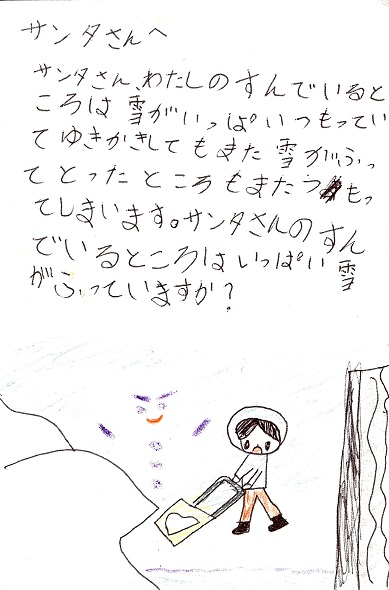 サンタさんへ
サンタさん、わたしのすんでいると
ころは雪がいっぱいつもってい
てゆきかきしてもまた雪がふっ
てとったところもまたつもっ
てしまいます。サンタさんのすん
でいるところはいっぱい雪
がふっていますか?